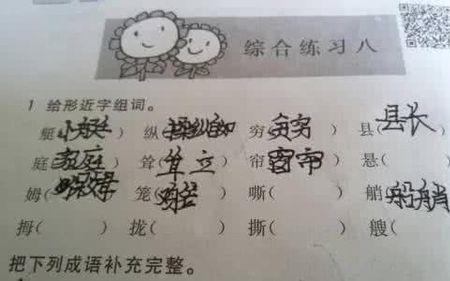 综合练习八
1 给形近字组词。
艇(小艇) 纵(操纵) 穷(贫穷) 县(县长)
庭(家庭) 耸(耸立) 帘(窗帘) 悬(
姆(保姆) 笼(鸡笼) 嘶( ) 艄(船艄)
拇( ) 拢( ) 撕( ) 艘(
把下列成语补充完整。